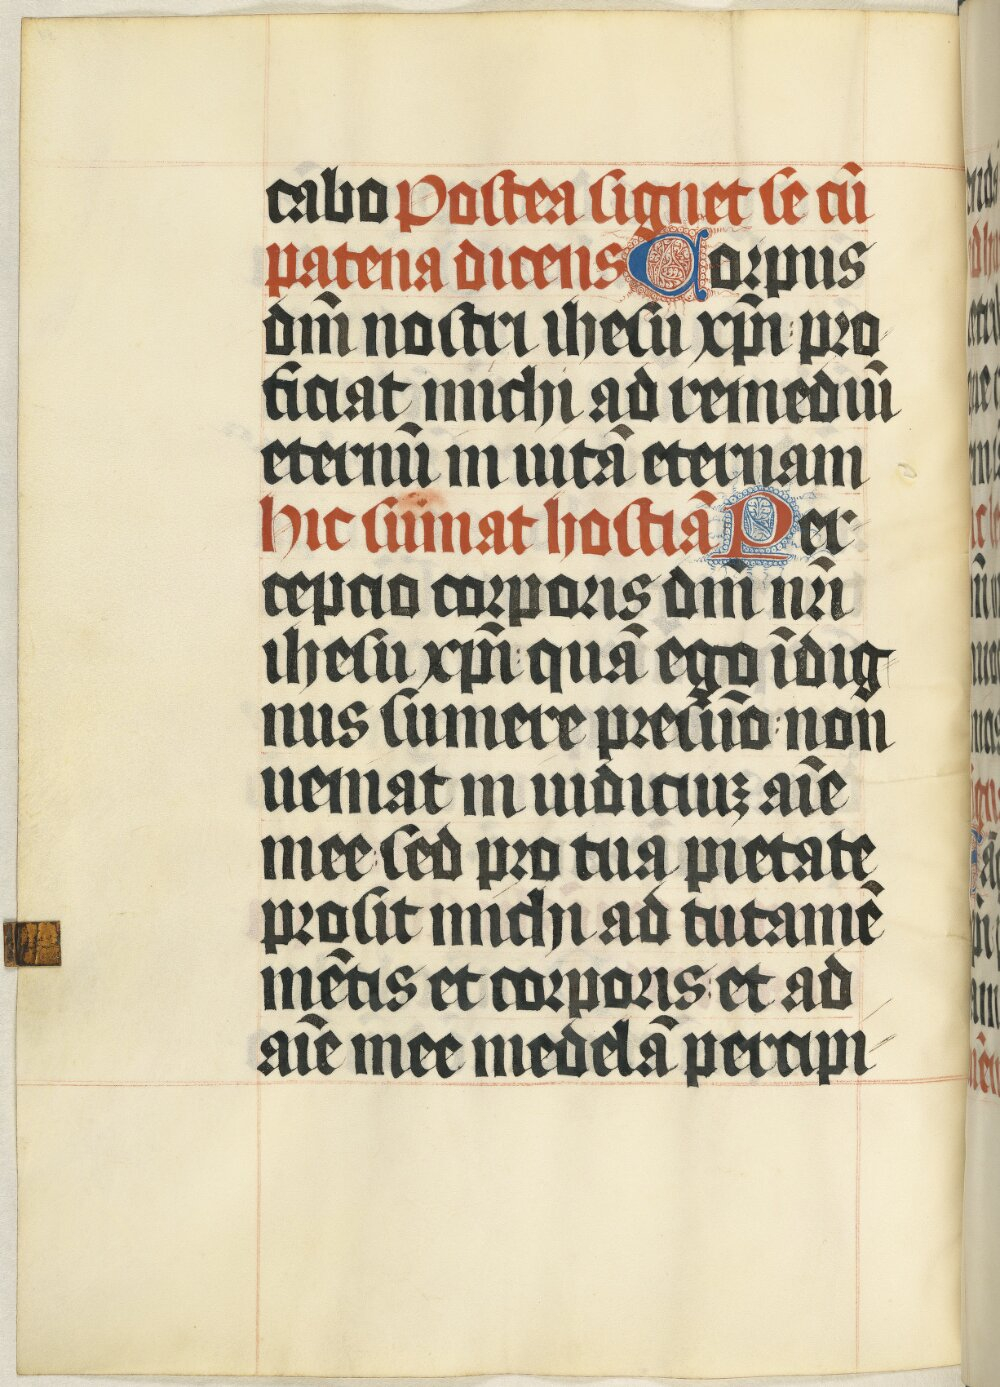 cabo Postea signet se cū
patena dicens Corpus
dm̄ nostri ihesu xp̄i: pro
ficiat michi ad remediū
eternū in uitā eternam
hic sūmat hostiā Per
cepcio corporis dm̄ nr̄i
ihesu xp̄i: quā ego īdig
nus sumere presūō: non
ueniat in iudiciuꝫ aīe
mee: sed pro tua pietate
prosit michi ad tutamē
mētis et corporis: et ad
aīe mee medelā percipi